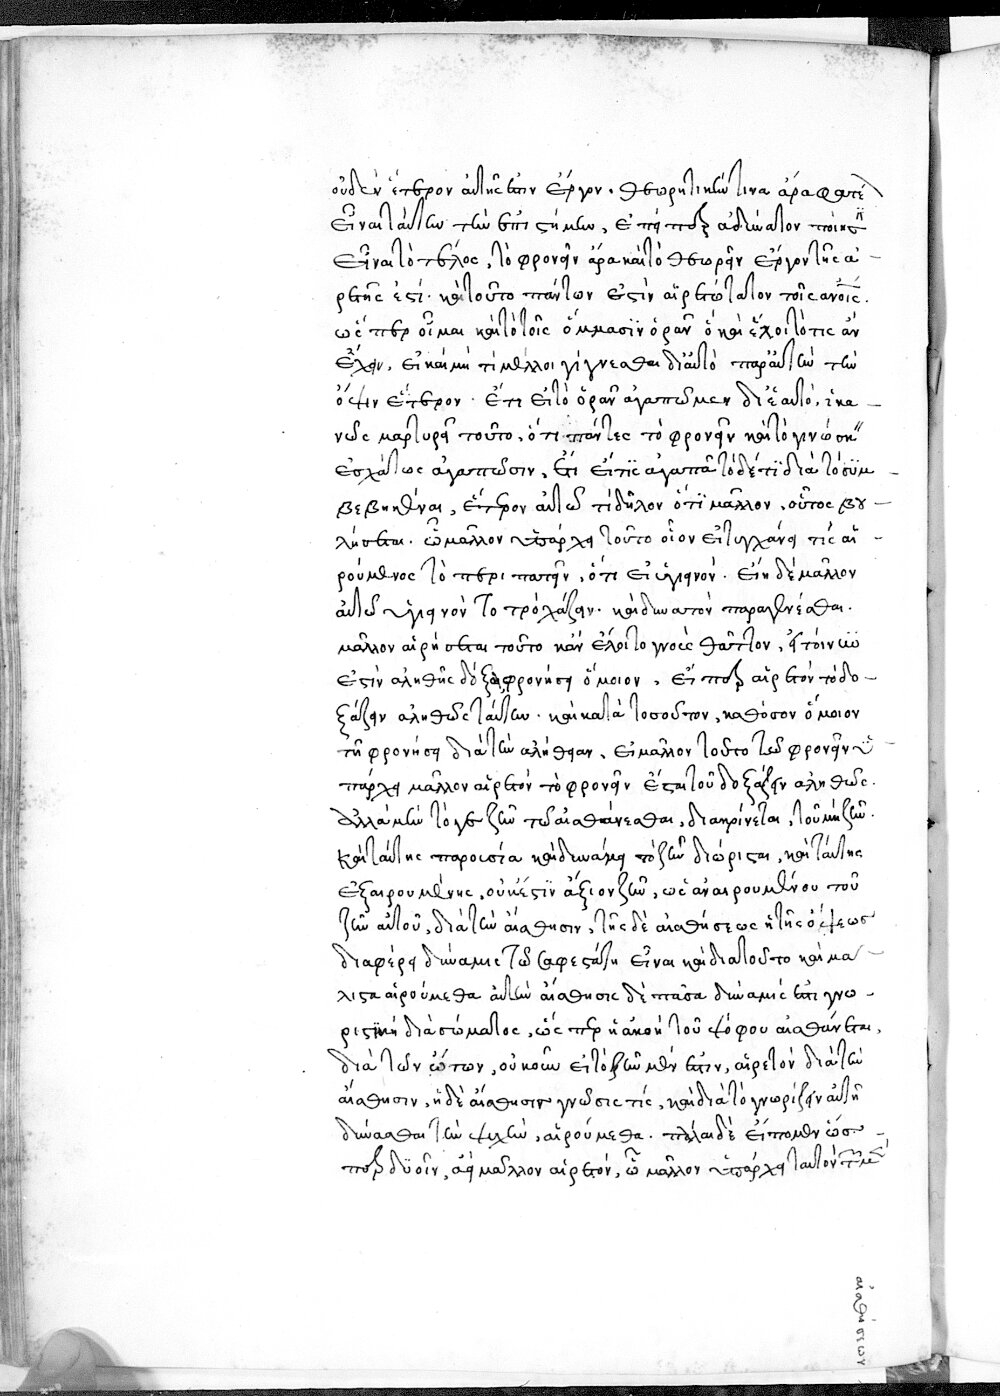 οὐδὲν ἕτερον αὐτῆς ἐστιν ἔργον. θεωρητικήν τινα ἄρα φατέ
εἶναι ταύτην τὴν ἐπιστήμην, ἐπείπερ ἀδύνατον ποίησιν
εἶναι τὸ τέλος, τὸ φρονεῖν ἄρα καὶ τὸ θεωρεῖν ἔργον τῆς ἀ-
ρετῆς ἐστί. καὶ τοῦτο πάντων ἐστὶν αἱρετώτατον τοῖς ἀνοις.
ὥσπερ οἶμαι καὶ τὸ τοῖς ὄμμασιν ὁρᾶν ὃ καὶ ἕλοιτό τις ἂν
ἔχειν, εἰ καὶ μή τι μέλλοι γίγνεσθαι δι' αὐτὸ παρ' αὐτὴν τὴν
ὄψιν ἕτερον. ἔτι εἰ τὸ ὁρᾶν ἀγαπῶμεν δι' ἑαυτό, ἱκα-
νῶς μαρτυρεῖ τοῦτο, ὅτι πάντες τὸ φρονεῖν καὶ τὸ γινώσκειν
ἐσχάτως ἀγαπῶσιν, ἔτι εἴ τις ἀγαπᾶ τόδέ τι διὰ τὸ συμ-
βεβηκέναι, ἕτερον αὐτῶ τι δῆλον ὅτι μᾶλλον, οὗτος βου-
λήσεται. ὧ μᾶλλον ὑπάρχει τοῦτο οἷον εἰ τυγχάνει τις αἱ-
ρούμενος τὸ περιπατεῖν, ὅτι ὑγιεινόν. εἴη δὲ μᾶλλον
αὐτῶ ὑγιεινὸν τὸ τροχάζειν. καὶ δυνατὸν παραγενέσθαι.
μᾶλλον αἱρήσεται τοῦτο κἂν ἕλοιτο γνοὺς θᾶττον, εἰ τοίνυν
ἐστὶν ἀληθὴς δόξα φρονήσει ὅμοιον, εἴπερ αἱρετὸν τὸ δο-
ξάζειν ἀληθῶς ταύτην. καὶ κατὰ τοσοῦτον, καθόσον ὅμοιον
τῆ φρονήσει διὰ τὴν ἀλήθειαν, εἰ μᾶλλον τοῦτο τῶ φρονεῖν ὑ-
πάρχει μᾶλλον αἱρετὸν τὸ φρονεῖν ἔσται τοῦ δοξάζειν ἀληθῶς.
ἀλλὰ μὴν τό γε ζῆν τῶ αἰσθάνεσθαι, διακρίνεται, τοῦ μὴ ζῆν.
καὶ ταύτης παρουσία καὶ δυνάμει τὸ ζῆν διώρισται, καὶ ταύτης
ἐξαιρουμένης, οὐκ ἔστιν ἄξιον ζῆν, ὡς ἀναιρουμένου τοῦ
ζῆν αὐτοῦ, διὰ τὴν αἴσθησιν, τῆς δὲ αἰσθήσεως ἡ τῆς ὄψεως
διαφέρει δύναμις τῶ σαφεστάτη εἶναι καὶ διὰ τοῦτο καὶ μά-
λιστα αἱρούμεθα αὐτὴν αἴσθησις δὲ πᾶσα δύναμίς ἐστι γνω-
ριστικὴ διὰ σώματος, ὥσπερ ἡ ἀκοὴ τοῦ ψόφου αἰσθάνεται,
διὰ τῶν ὤτων, οὐκοῦν εἰ τὸ ζῆν μὲν ἐστιν, αἱρετὸν διὰ τὴν
αἴσθησιν, ἡ δὲ αἴσθησις γνῶσίς τις, καὶ διὰ τὸ γνωρίζειν αὐτῆ
δύνασθαι τὴν ψυχὴν, αἱρούμεθα. πάλαι δὲ εἴπομεν ὥσ-
περ δυοῖν, ἀεὶ μᾶλλον αἱρετὸν, ὧ μᾶλλον ὑπάρχει ταυτὸν
αἰσθήσεων